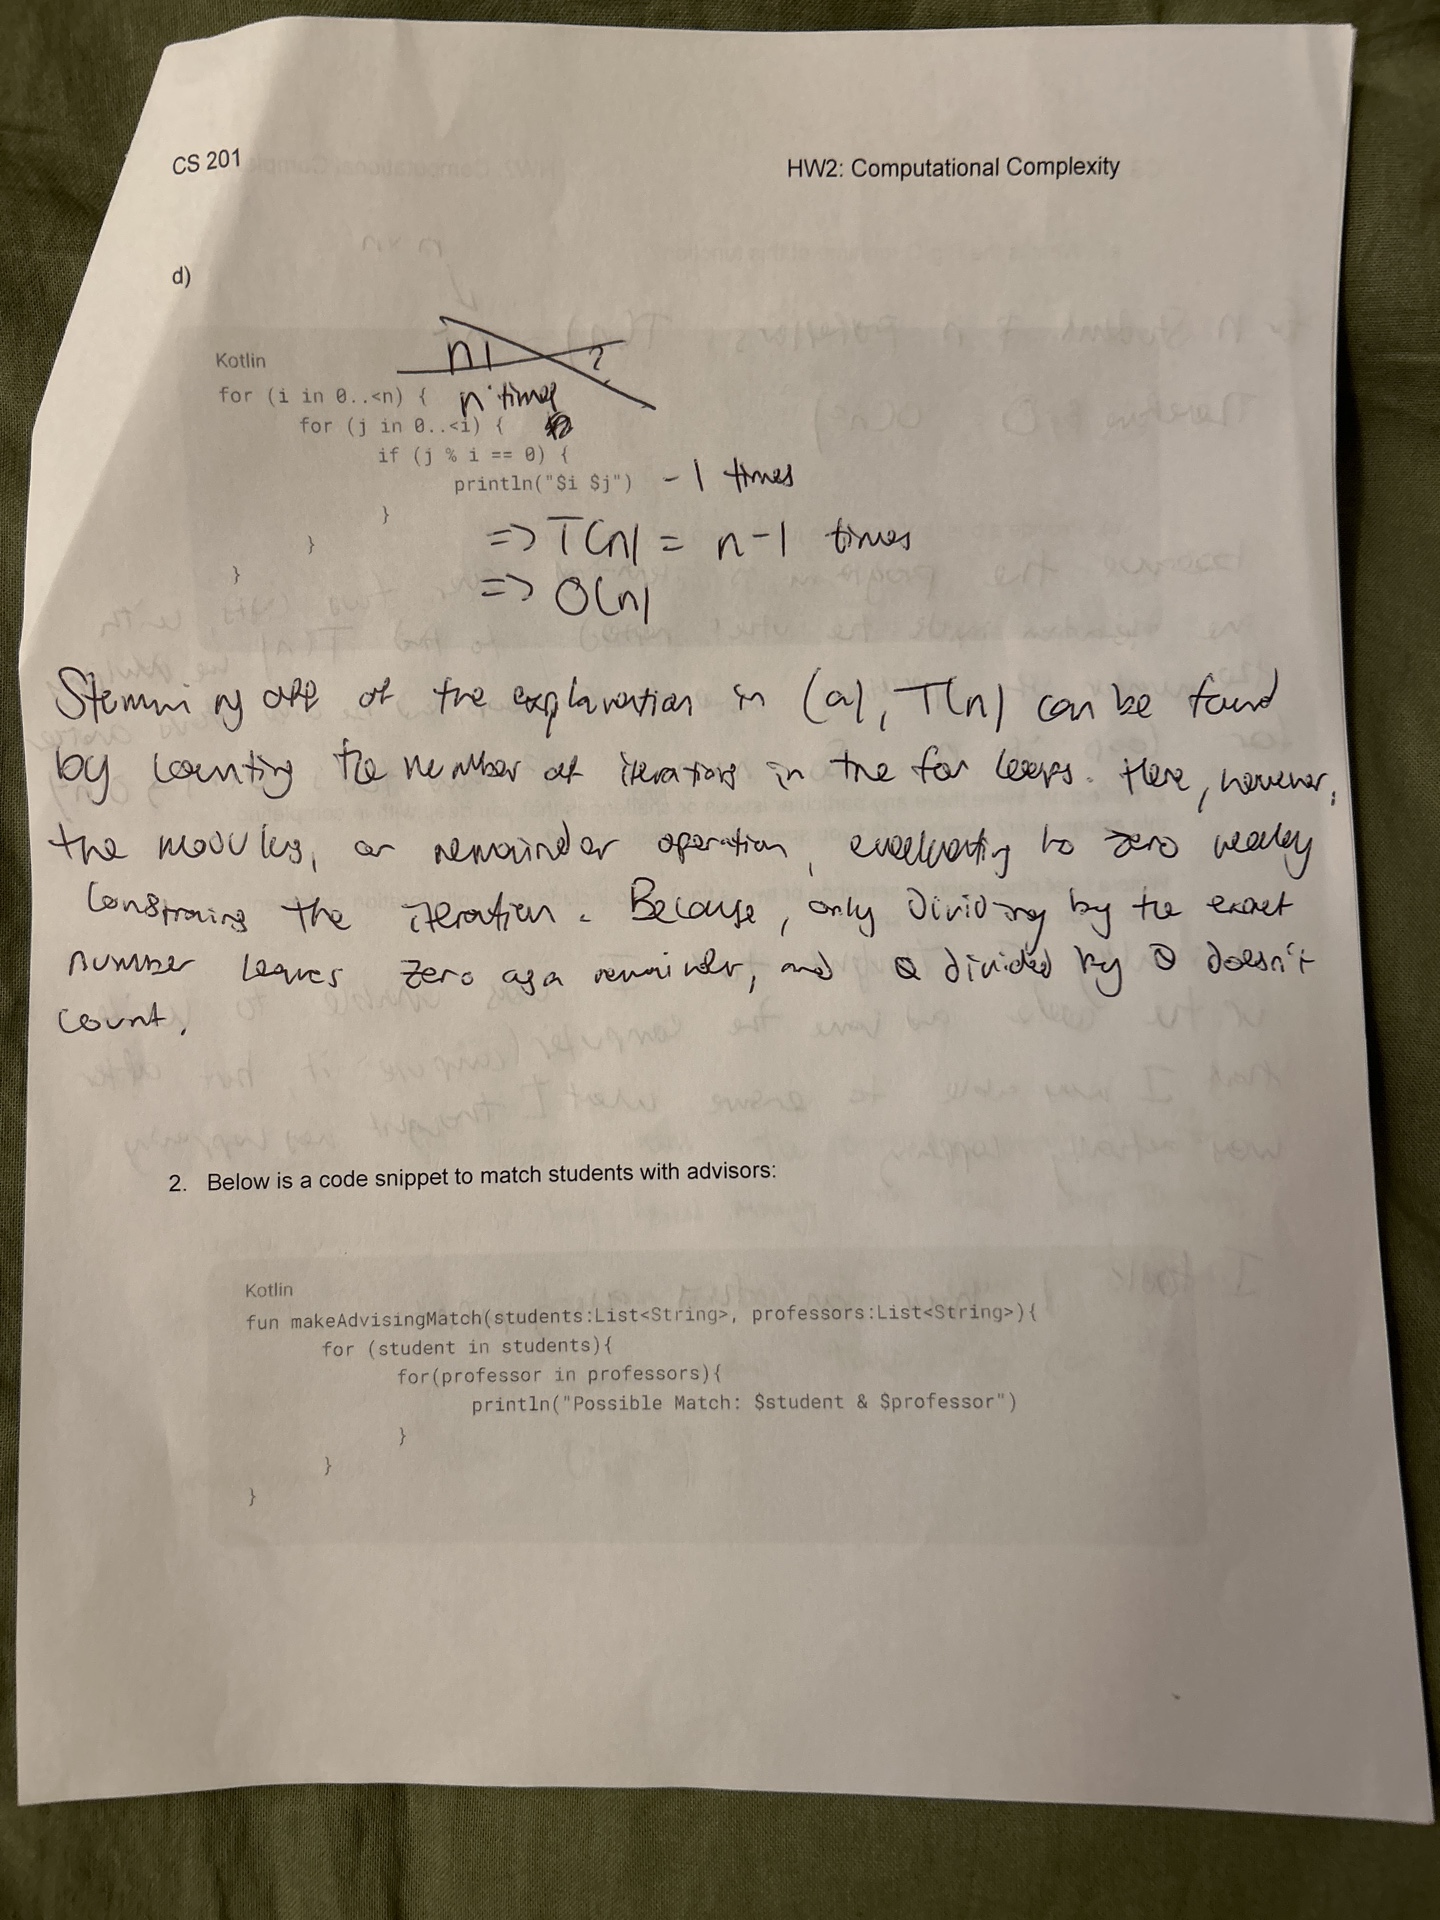 CS 201
HW2: Computational Complexity
d)
n!
?
Kotlin
for (i in 0..<n) { n times
for (j in 0..<i) {
if (j % i == 0) {
println("$i $j") - 1 times
}
}
}
=> T(n) = n-1 times
=> O(n)
Stemming off of the explanation in (a), T(n) can be found
by counting the number of iterations in the for loops. Here, however,
the modulus, or remainder operation, evaluating to zero
constrains the iteration. Because, only dividing by the exact
number leaves zero as a remainder, and 0 divided by 0 doesn't
count.
2. Below is a code snippet to match students with advisors:
Kotlin
fun makeAdvisingMatch(students:List<String>, professors:List<String>){
for (student in students){
for(professor in professors){
println("Possible Match: $student & $professor")
}
}
}